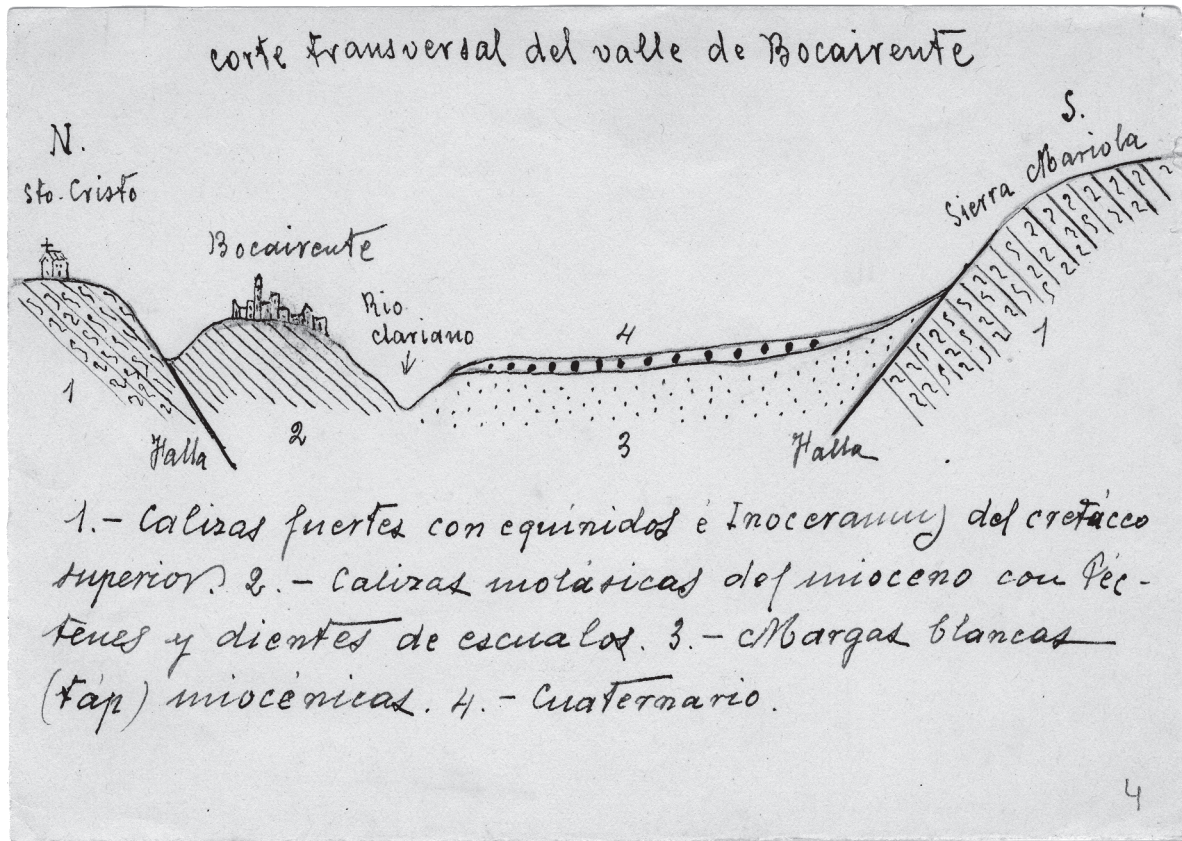 corte transversal del valle de Bocairente
N.
S.
Sto. Cristo
Sierra Mariola
Bocairente
Rio
Clariano
4
1
1
2
3
Falla
Falla
1.- Calizas fuertes con equínidos é Inoceramus del cretácco
superior. 2. - Calizas molásicas del mioceno con Péc-
tenes y dientes de escualos. 3.- Margas blancas
(táp) miocénicas. 4. - Cuaternario.
4